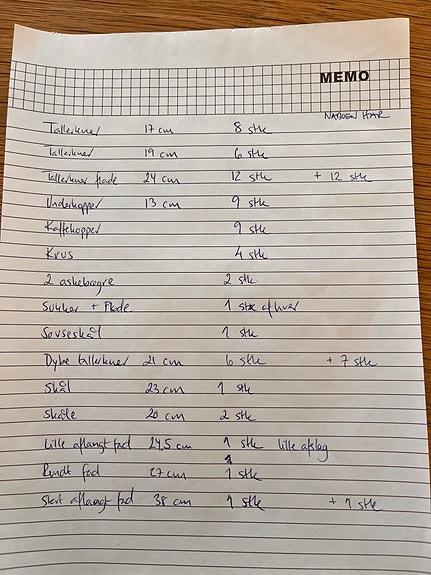 MEMO
NABOEN HAR
Tallerkner 17 cm 8 stk
Tallerkner 19 cm 6 stk
Tallerkner flade 24 cm 12 stk + 12 stk
Underkopper 13 cm 9 stk
Kaffekopper 9 stk
Krus 4 stk
2 askebægre 2 stk
Sukker + Fløde 1 stk af hver
Sovseskål 1 stk
Dybe tallerkner 21 cm 6 stk + 7 stk
Skål 23 cm 1 stk
Skåle 20 cm 2 stk
Lille aflangt fad 24,5 cm 1 stk lille afslag
Rundt fad 27 cm 1 stk
Stort aflangt fad 38 cm 1 stk + 1 stk